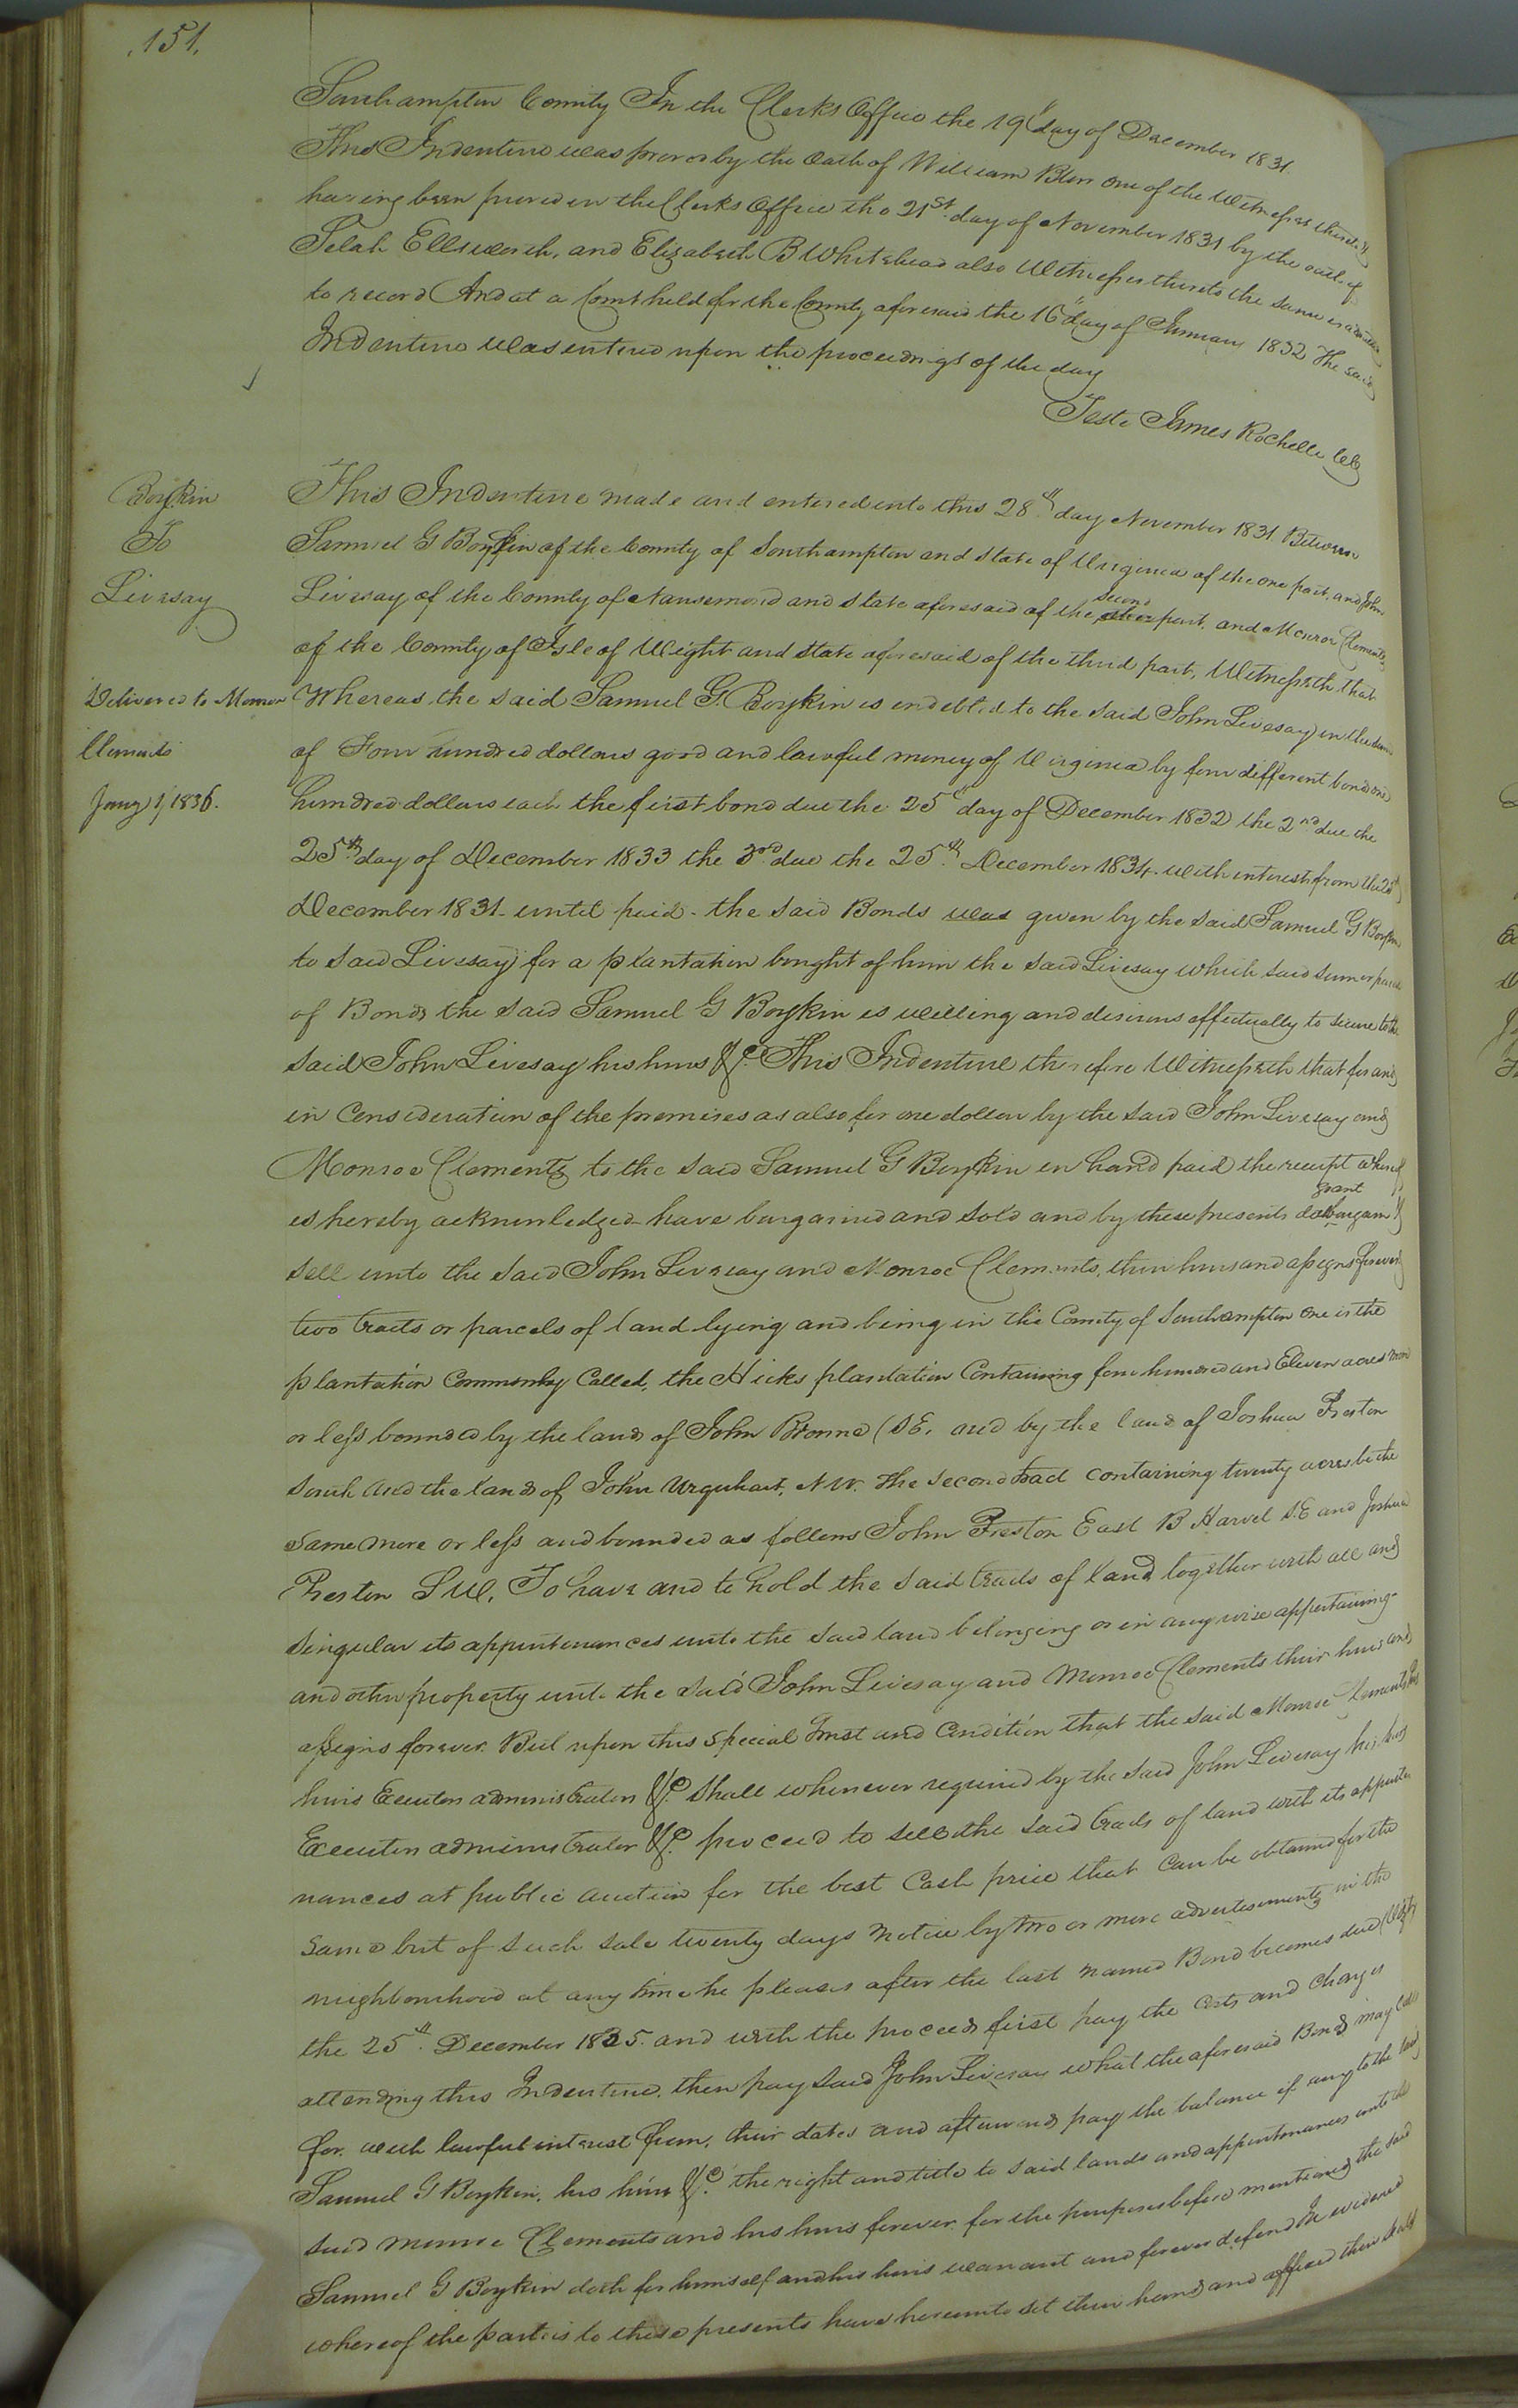 151.
Southampton County In the Clerks Office the 19th day of December 1831.
This Indenture was proved by the Oath of William Blow one of the Witnesses thereto &
having been proved in the Clerks Office the 21st. day of November 1831 by the oath of
Selah Ellsworth, and Elizabeth B Whitehead also Witnesses thereto the same is admitted
to record And at a Court held for the County aforesaid the 16th day of January 1832 The said
Indenture was entered upon the proceedings of the day
Teste James Rochelle Clk
Boykin
To
Livesay
Delivered to Monroe
Clements
Jany 1, 1836.
This Indenture made and entered into this 28th. day November 1831 Between
Samuel G Boykin of the County of Southampton and State of Virginia of the one part, and John
Livesay of the County of Nansemond and State aforesaid of the second part, and Monroe Clements
of the County of Isle of Wight and State aforesaid of the third part, Witnesseth that
Whereas, the said Samuel G. Boykin is indebted to the said John Livesay in the sum
of Four hundred dollars good and lawful money of Virginia by four different bonds one
hundred dollars each the first bond due the 25th day of December 1832 the 2nd due the
25th. day of December 1833 the 3rd. due the 25th. December 1834. with interest from the 25th
December 1831 until paid - the said Bonds was given by the said Samuel G Boykin
to said Livesay for a plantation bought of him the said Livesay which said sum or
of Bonds the said Samuel G Boykin is willing and desirous effectually to secure to the
said John Livesay his heirs &c. This Indenture therefore Witnesseth that for and
in Consideration of the premises as also for one dollar by the said John Livesay and
Monroe Clements to the said Samuel G Boykin in hand paid the receipt whereof
is hereby acknowledged have bargained and sold and by these presents do grant bargain &
sell unto the said John Livesay and Monroe Clements, their heirs and assigns forever
two tracts or parcels of land lying and being in the County of Southampton one is the
plantation Commonly Called, the Hicks plantation Containing four hundred and Eleven acres more
or less bounded by the lands of John Browne (S E. and by the land of Joshua Preston
South and the lands of John Urquhart, N W. The second tract containing twenty acres be the
same more or less and bounded as follows John Preston East B Harvel S.E and Joshua
Preston S W, To have and to hold the said tracts of land together with all and
singular its appurtenances unto the said land belonging or in any wise appertaining-
and other property unto the said John Livesay and Monroe Clements their heirs and
assigns forever. But upon this special Trust and Condition that the said Monroe Clements his
heirs Executors administrators &c. shall whenever required by the said John Livesay his heirs
Executors administrators &c. proceed to sell the said tracts of land with its appurte
nances at public auction for the best Cash price that Can be obtained for the
same but of such sale twenty days notice by two or more advertisements in the
neighbourhood at any time he pleases after the last named Bond becomes due (Viz)
the 25th. December 1835. and with the proceeds first pay the Costs and charges
attending this Indenture. then pay said John Livesay what the aforesaid Bonds may call
for. with lawful interest from, their dates and afterwards pay the balance if any to the said
Samuel G Boykin, his heirs &c. the right and title to said lands and appurtenances unto the
said Monroe Clements and his heirs forever for the purposes before mentioned the said
Samuel G Boykin doth for himself and his heirs warrant and forever defend In evidence
whereof the parties to these presents have hereunto set their hands and affixed their seals